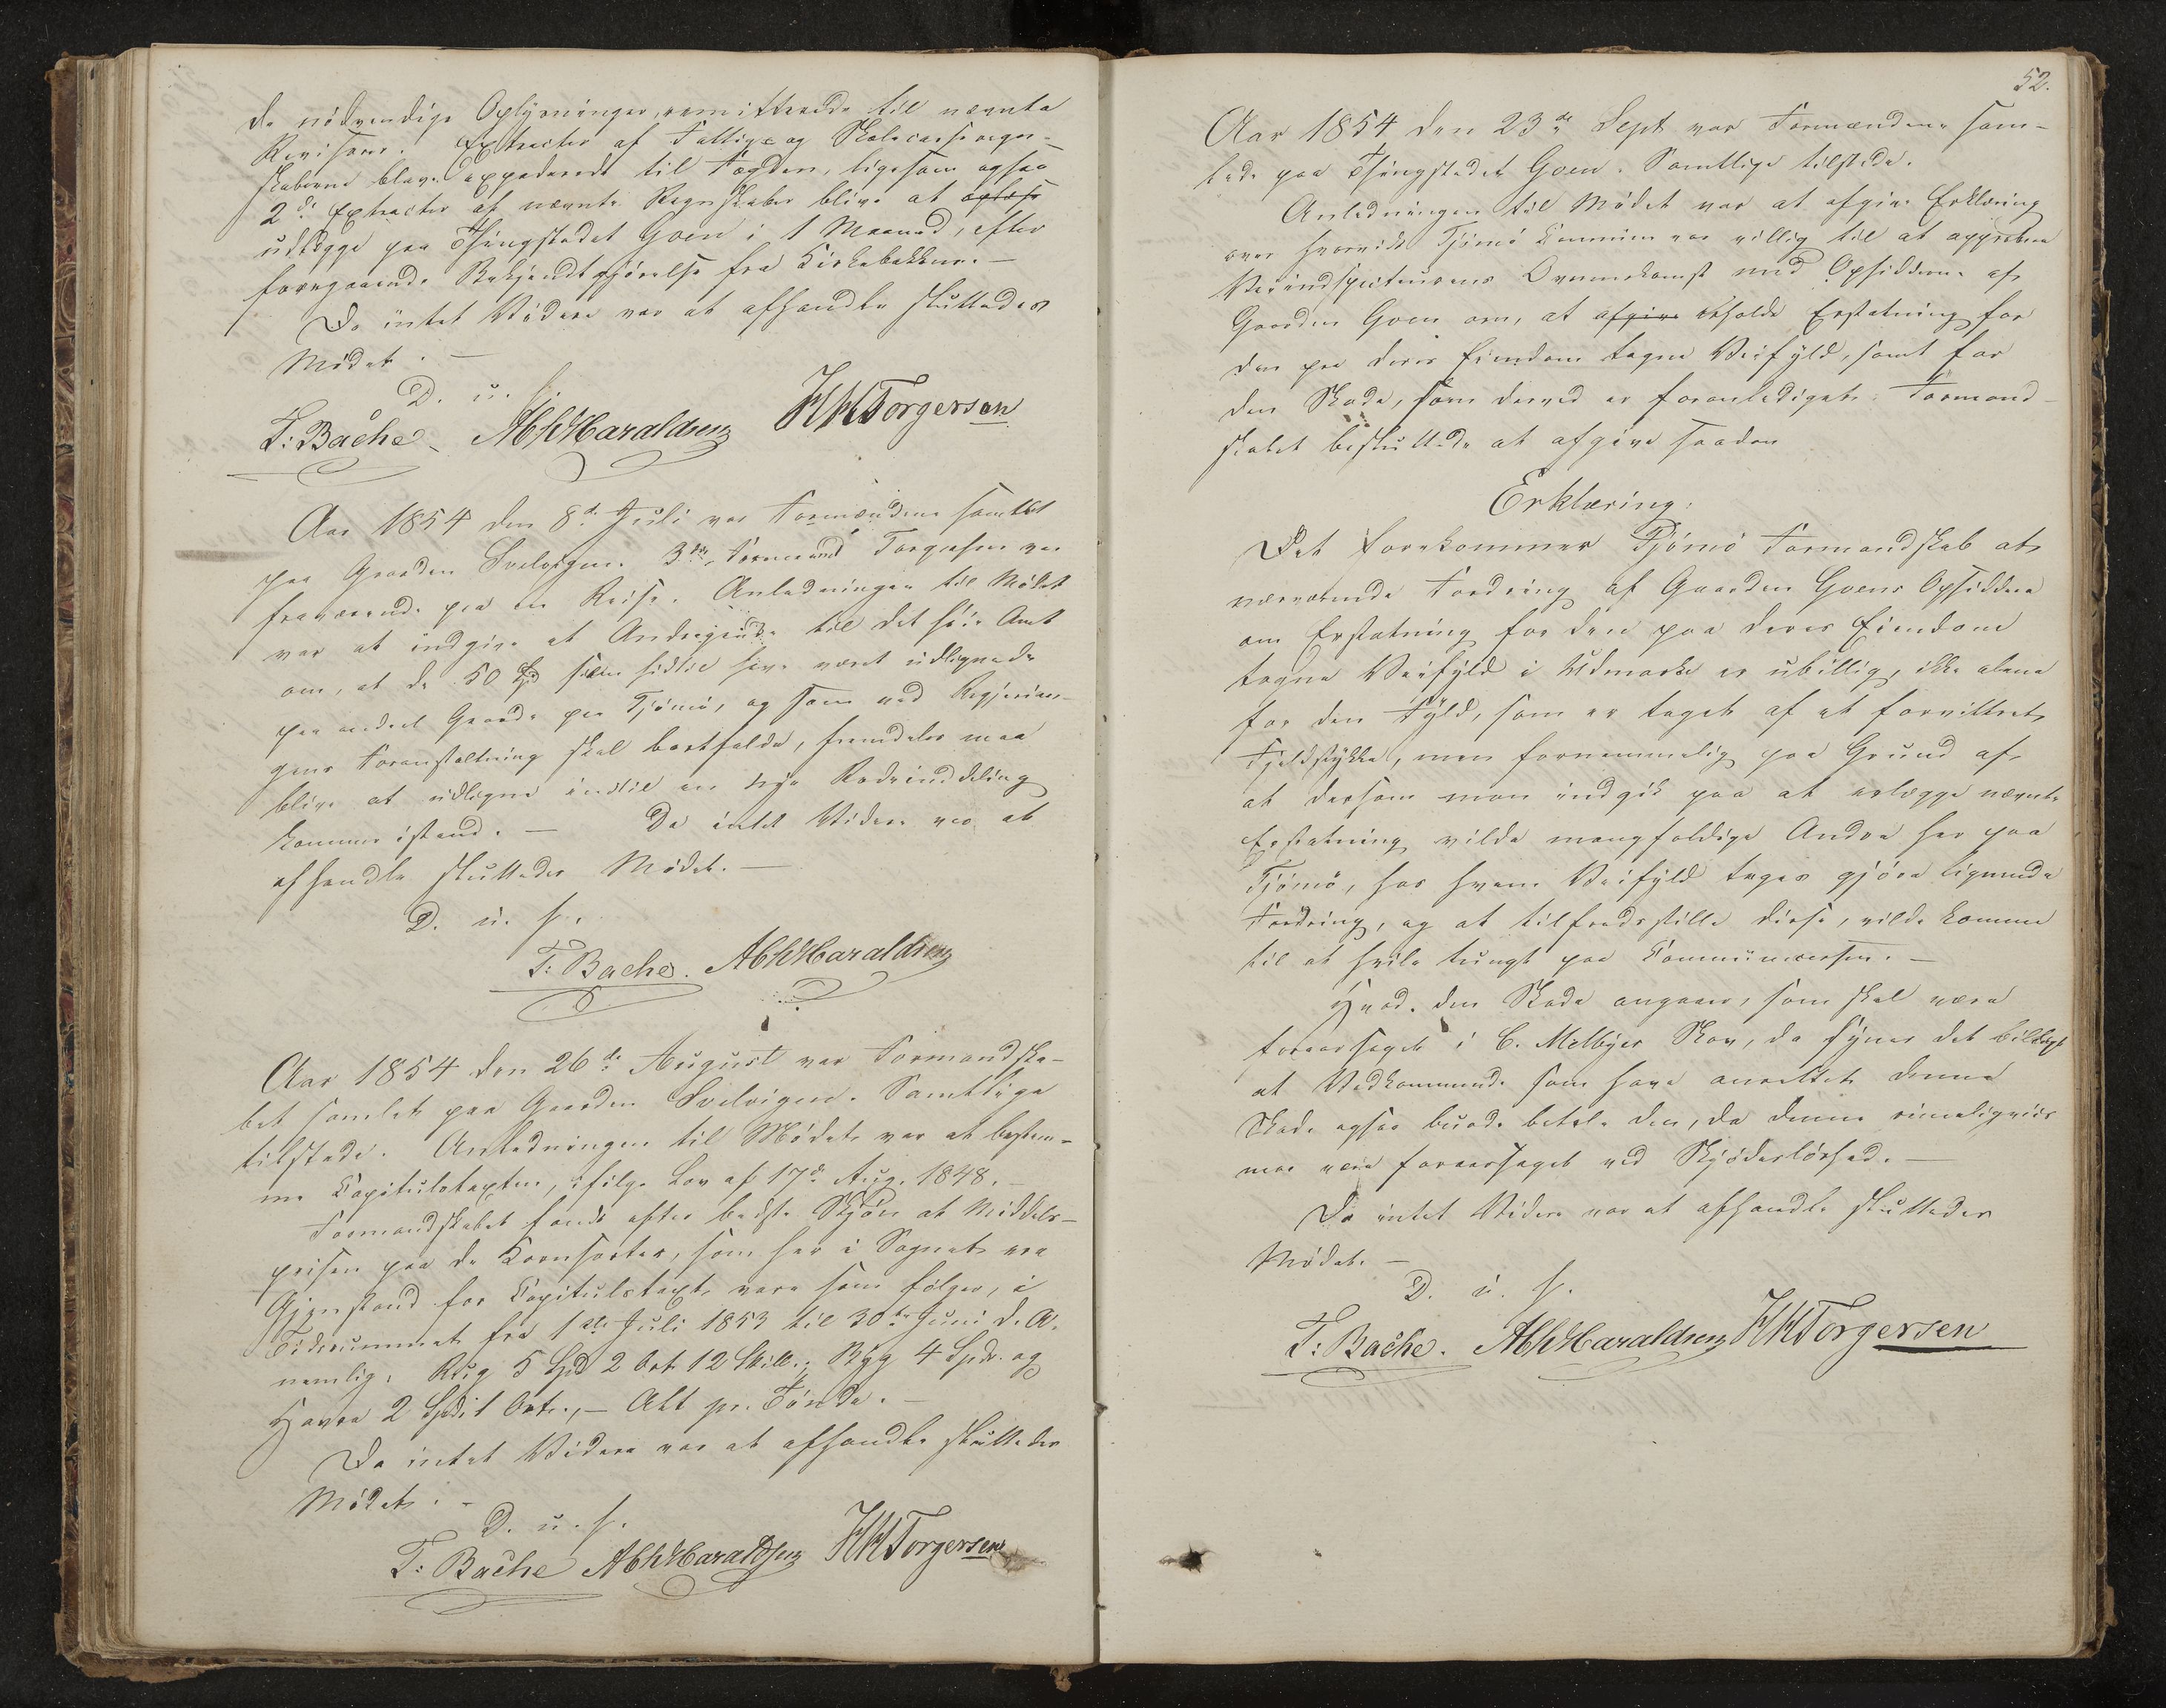 de nødvendige Oplysninger, remitterede til nævnte
Revisorer. Extracter af Fattig- og Skolecasseregn-
skaberne bleve expederede til Fogden, ligesom ogsaa
2de Extracter af nævnte Regnskaber blive at oplæse
udlægge paa Thingstedet Goen i 1 Maaned, efter
foregaaende Bekjendtgjørelse fra Kirkebakken. —
Da intet Videre var at afhandle sluttedes
Mødet. —
D. u. s.
T: Bache AbhHaraldsen HHTorgersen
Aar 1854 den 8de Juli var Formændene samlet
paa Gaarden Svelvigen. 3die Formand Torgersen var
fraværende paa en Reise. Anledningen til Mødet
var at indgive et Andragende til det høie Amt
om, at de 50 Spd som hidtil have været udlignede
paa endeel Gaarde paa Tjømø, og som ved Regjerin-
gens Foranstaltning skal bortfalde, fremdeles maa
blive at udligne indtil en nye Rodeinddeling
kommer istand. — Da intet Videre var at
afhandle sluttedes Mødet. —
D. u. s.
T: Bache. AbhHaraldsen
Aar 1854 den 26de August var Formandska-
bet samlet paa Gaarden Svelvigen. Samtlige
tilstede. Anledningen til Mødet var at bestem-
me Capitulstaxten, ifølge Lov af 17de Aug. 1848. —
Formandskabet fandt efter bedste Skjøn at Middels-
prisen paa de Kornsorter, som her i Sognet ere
Gjenstand for Capitulstaxt, være som følger, i
Tidsrummet fra 1ste Juli 1853 til 30te Juni d. A.
nemlig: Rug 5 Spd 2 Ort 12 Skill.; Byg 4 Spd. og
Havre 2 Spd 1 Ort., — Alt pr. Tønde. —
Da intet Videre var at afhandle sluttedes
Mødet. —
D. u. s.
T: Bache AbhHaraldsen HHTorgersen
52.
Aar 1854 den 23de Sept var Formændene sam-
lede paa Thingstedet Goen. Samtlige tilstede.
Anledningen til Mødet var at afgive Erklæring
over hvorvidt Tjømø Commune var villig til at approbere
Veiindspecteurens Overenskomst med Opsidderne af
Gaarden Goen om, at afgive erholde Erstatning for
den paa deres Eiendom tagne Veifyld, samt for
den Skade, som derved er foranlediget. Formand-
skabet besluttede at afgive saadan
Erklæring:
Det forekommer Tjømø Formandskab at
nærværende Fordring af Gaarden Goens Opsiddere
om Erstatning for den paa deres Eiendom
tagne Veifyld i Udmarke er ubillig, ikke alene
for den Fyld, som er taget af et forvittret
Fjeldstykke, men fornemmelig paa Grund af
at dersom man indgik paa at erlægge nævnte
Erstatning vilde mangfoldige Andre her paa
Tjømø, hos hvem Veifyld tages gjøre lignende
Fordring, og at tilfredsstille disse, vilde komme
til at hvile tungt paa Communecassen. —
Hvad den Skade angaaer, som skal være
foraarsaget i C. Melbyes Skov, da synes det billigt
at Vedkommende som have anrettet denne
Skade ogsaa burde betale den, da denne rimeligviis
maa være foraarsaget ved Skjødesløshed. —
Da intet Videre var at afhandle sluttedes
Mødet. —
D. u. s.
T: Bache. AbhHaraldsen HHTorgersen